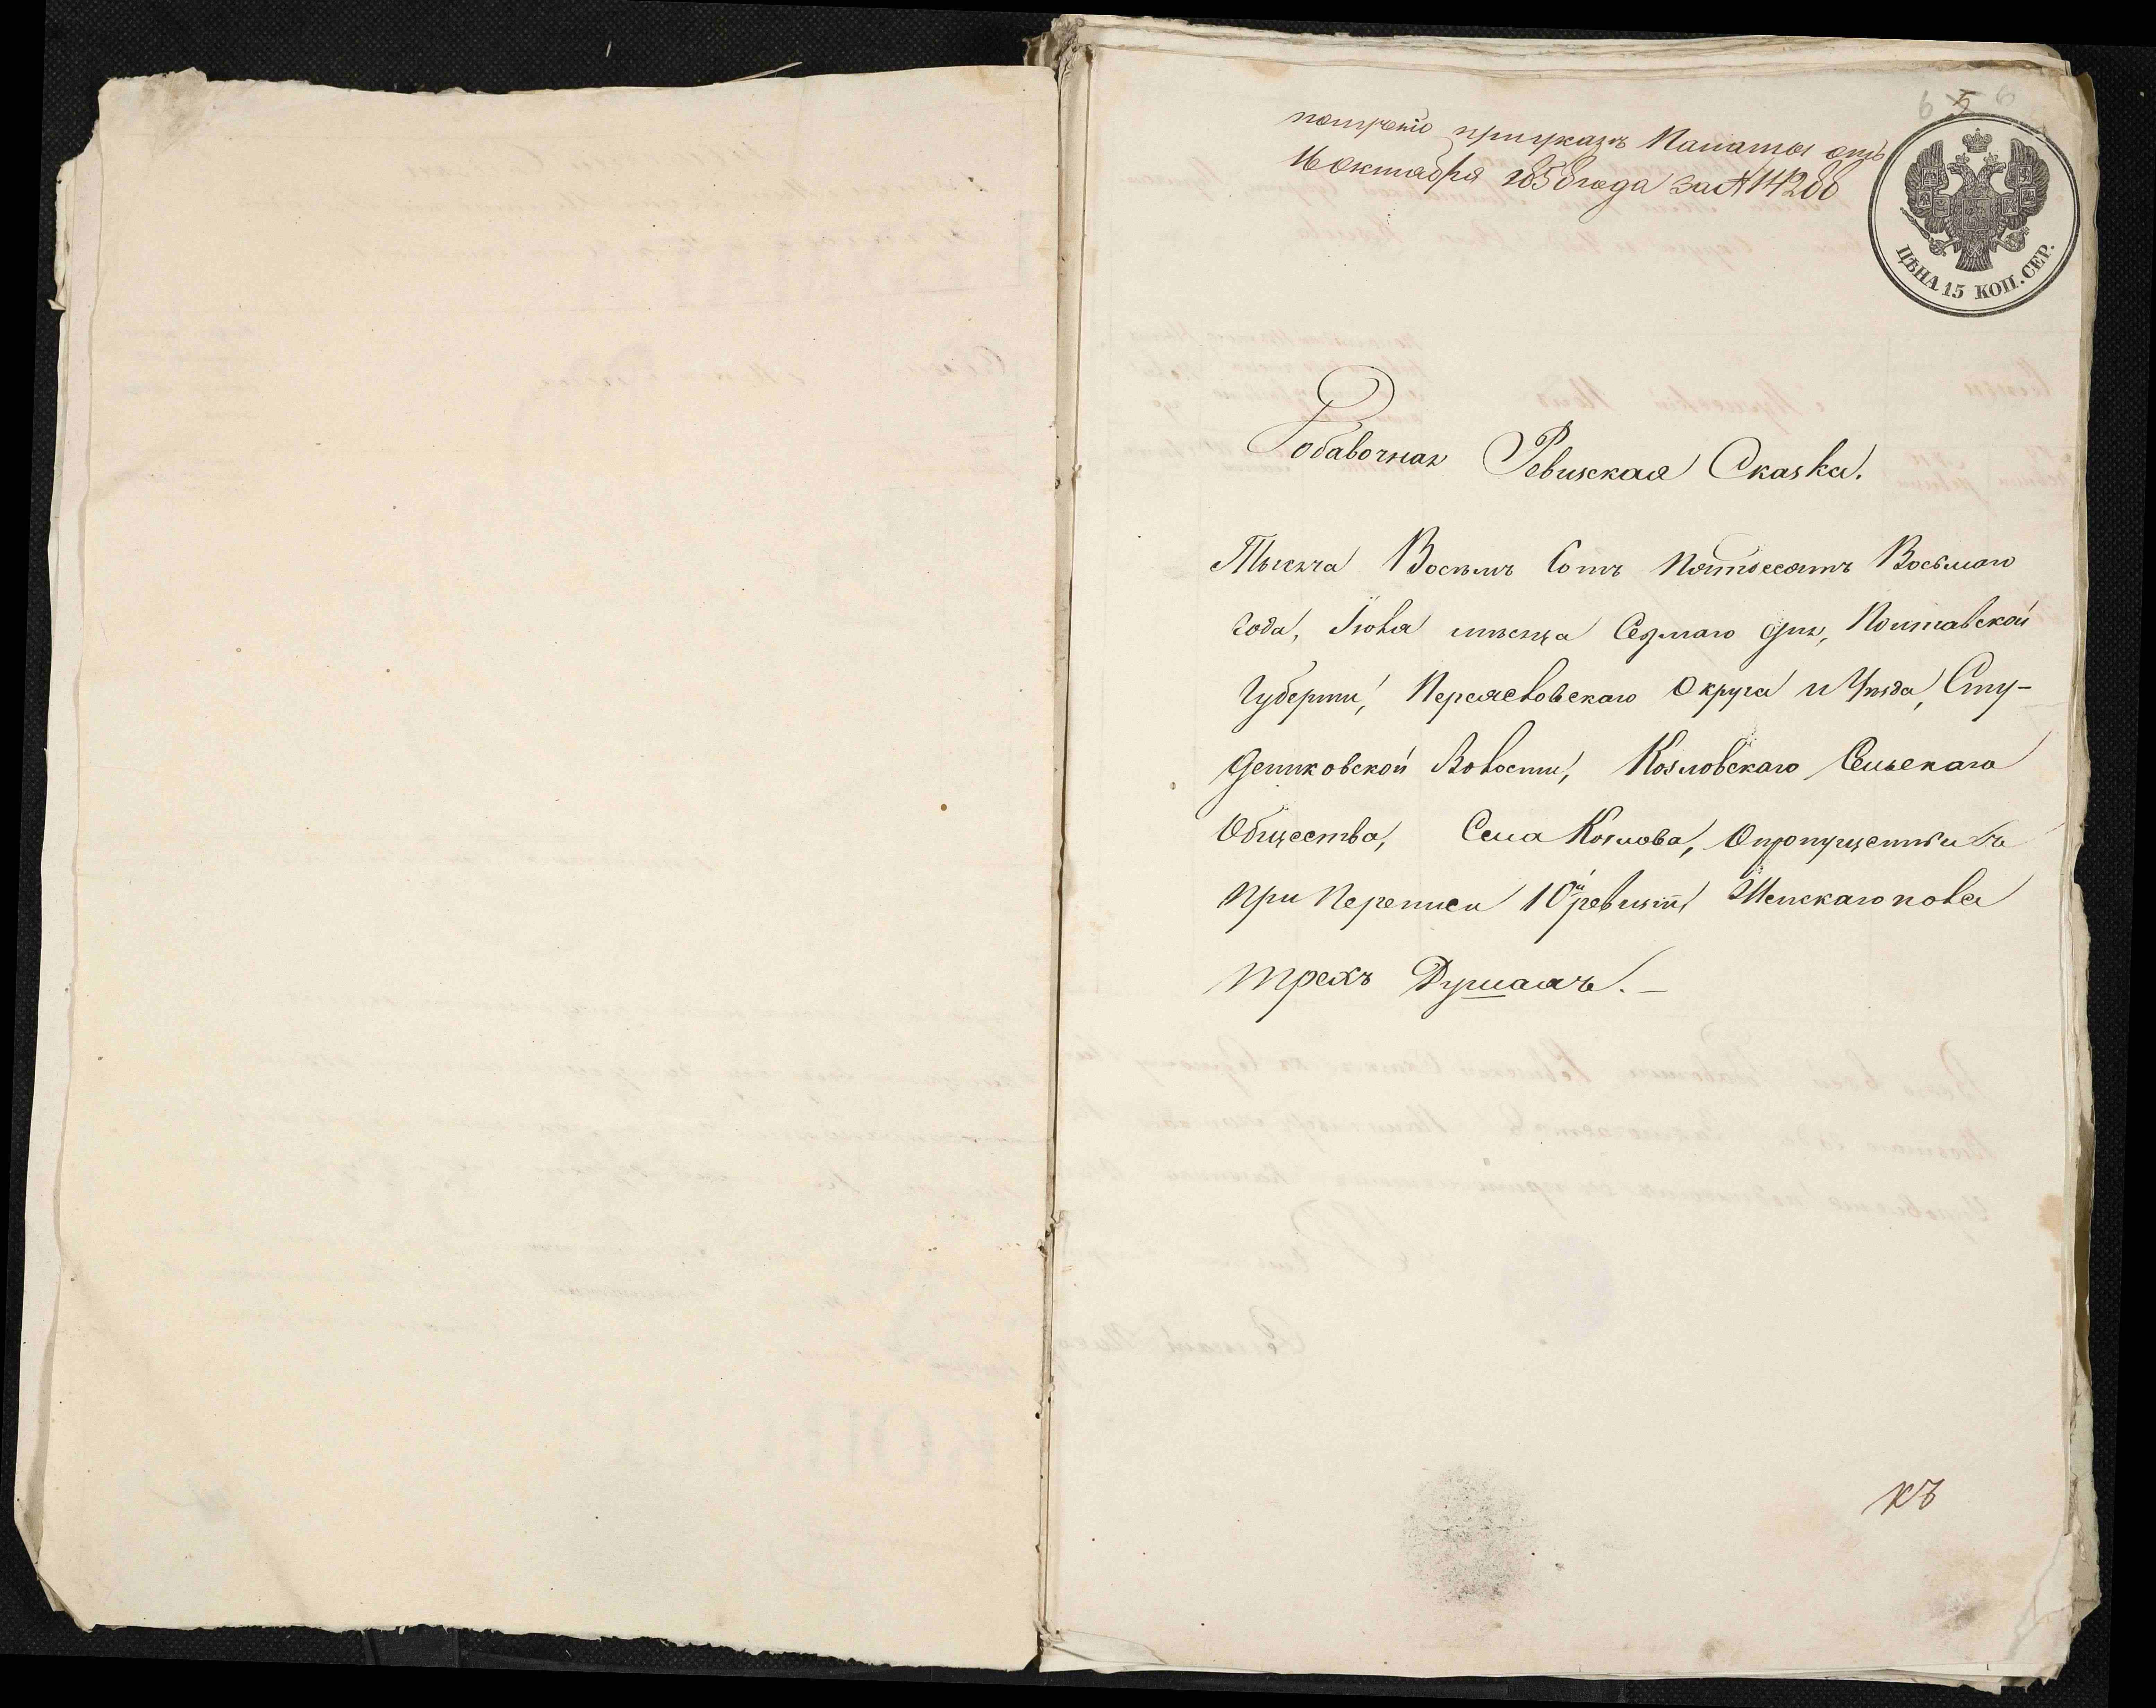 6 5 6
получено при указѣ Палаты отъ
16 октября 1858 года за № 14200
ЦѢНА 15 КОП. СЕР.
Добавочная Ревизская Сказка.
Тысяча Восемь Сотъ Пятьдесятъ Восьмаго
года, Іюля мѣсяца Седмаго дня, Полтавской
Губерніи, Переяславскаго Округа и Уѣзда, Сту-
дениковской Волости, Козловскаго Сельскаго
Общества, Села Козлова, О пропущенныхъ
при Переписи 10й ревизіи Женскаго пола
трехъ Душахъ.
къ